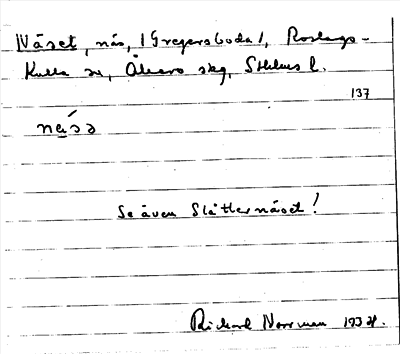 Näset, näs, (Gregersboda), Roslags-
Kulla sn, Åkers skg, Sthlms l.
137
nä́sə
Se även Slåtternäset!
Rickard Norrman 1934.